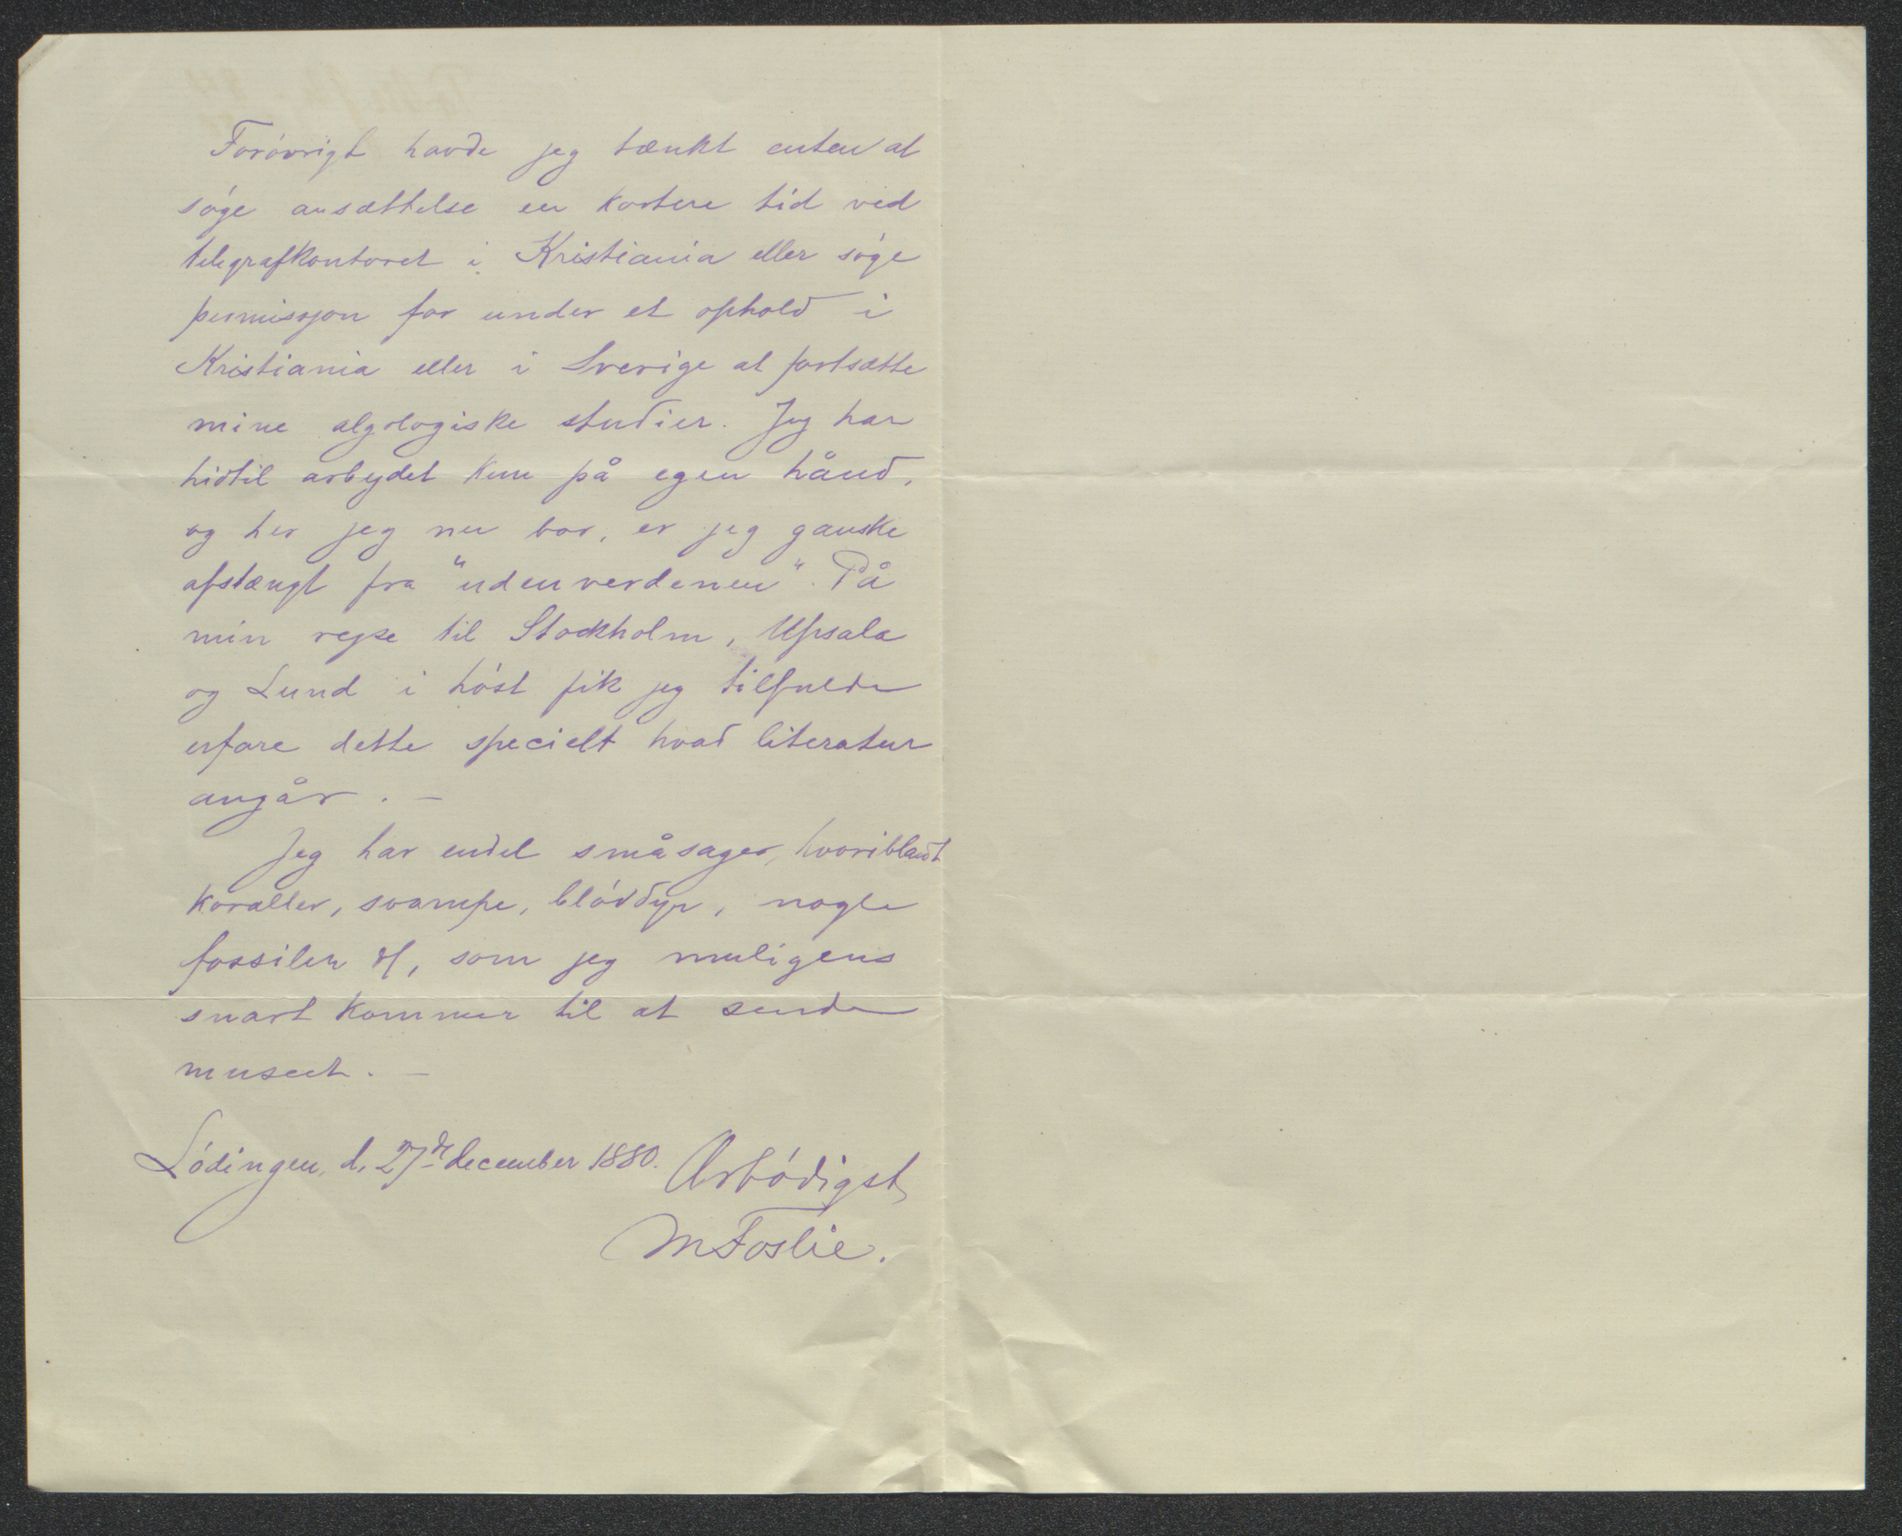 Forøvrigt havde jeg tænkt enten at
søge ansættelse en kortere tid ved
telegrafkontoret i Kristiania eller søge
permissjon for under et ophold i
Kristiania eller i Sverige at fortsætte
mine algologiske studier. Jeg har
hidtil arbejdet kun på egen hånd,
og her jeg nu bor, er jeg ganske
afstængt fra "udenverdenen". På
min rejse til Stockholm, Upsala
og Lund i høst fik jeg tilfulde
erfare dette specielt hvad literatur
angår. —
Jeg har endel småsager, hvoriblandt
koraller, svampe, bløddyr, nogle
fossiler &, som jeg muligens
snart kommer til at sende
museet. —
Lødingen, d. 27de december 1880. Ærbødigst
MFoslie.